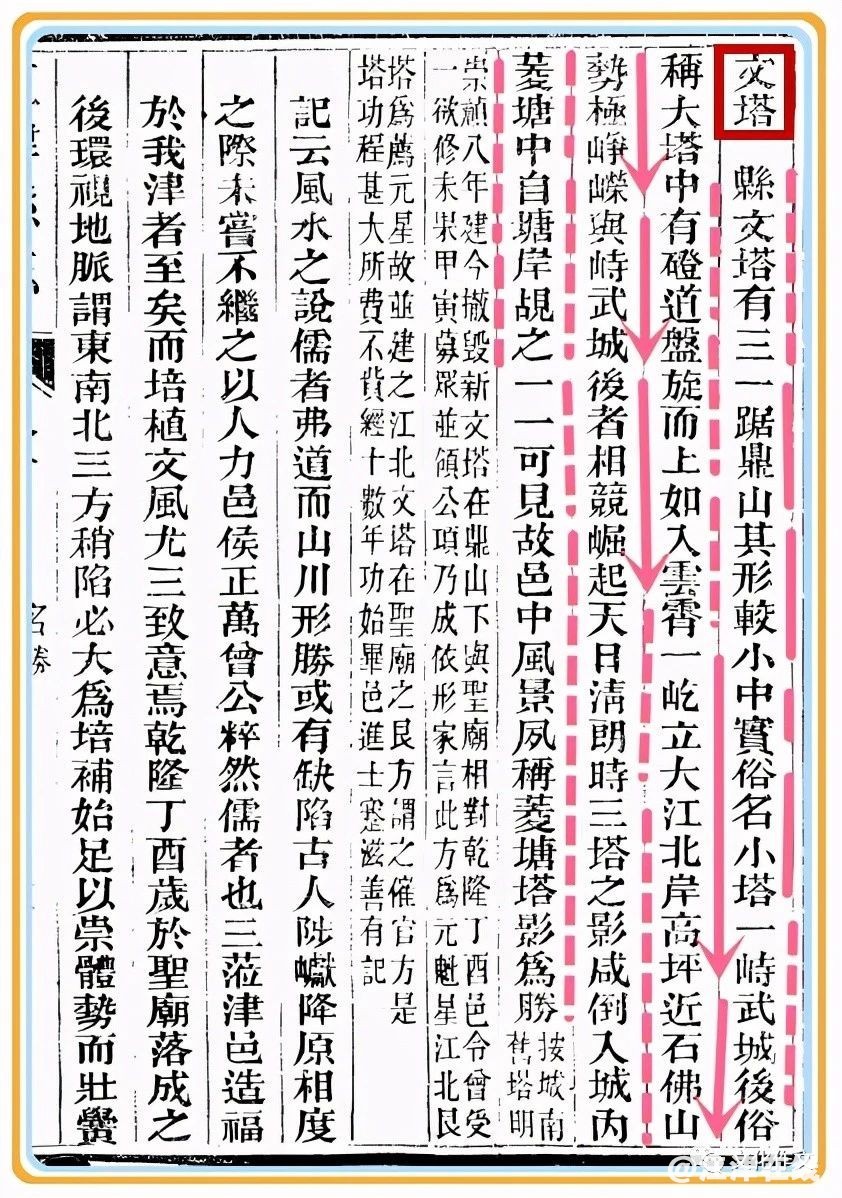 文塔 縣文塔有三一踞鼎山其形較小中實俗名小塔一峙武城後俗
稱大塔中有磴道盤旋而上如入雲霄一屹立大江北岸高坪近石佛山
勢極崢嶸與峙武城後者相競崛起天日淸朗時三塔之影咸倒入城內
菱塘中自塘岸覘之一一可見故邑中風景夙稱菱塘塔影爲勝
按城南
舊塔明
崇禎八年建今撤毀新文塔在鼎山下與聖廟相對乾隆丁酉邑令曾受
一欲修未果甲寅募眾並領公項乃成依形家言此方爲元魁星江北艮
塔爲薦元星故並建之江北文塔在聖廟之艮方謂之催官方是
塔功程甚大所費不貲經十數年功始畢邑進士蹇滋善有記
記云風水之說儒者弗道而山川形勝或有缺陷古人陟巘降原相度
之際未嘗不繼之以人力邑侯正萬曾公粹然儒者也三蒞津邑造福
於我津者至矣而培植文風尤三致意焉乾隆丁酉歲於聖廟落成之
後環視地脈謂東南北三方稍陷必大爲培補始足以崇體勢而壯黌
名勝